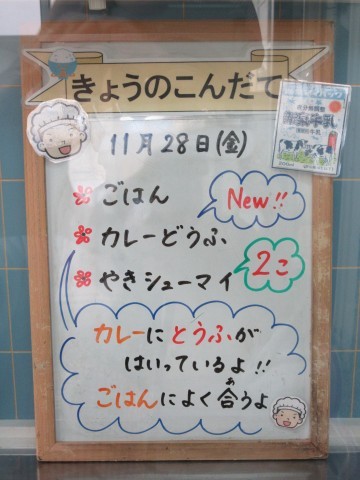 きょうのこんだて
11月28日(金)
ごはん
New!!
カレーどうふ
やきシューマイ
2こ
カレーにとうふが
はいっているよ!!
ごはんによく合うよ
あ
牛乳